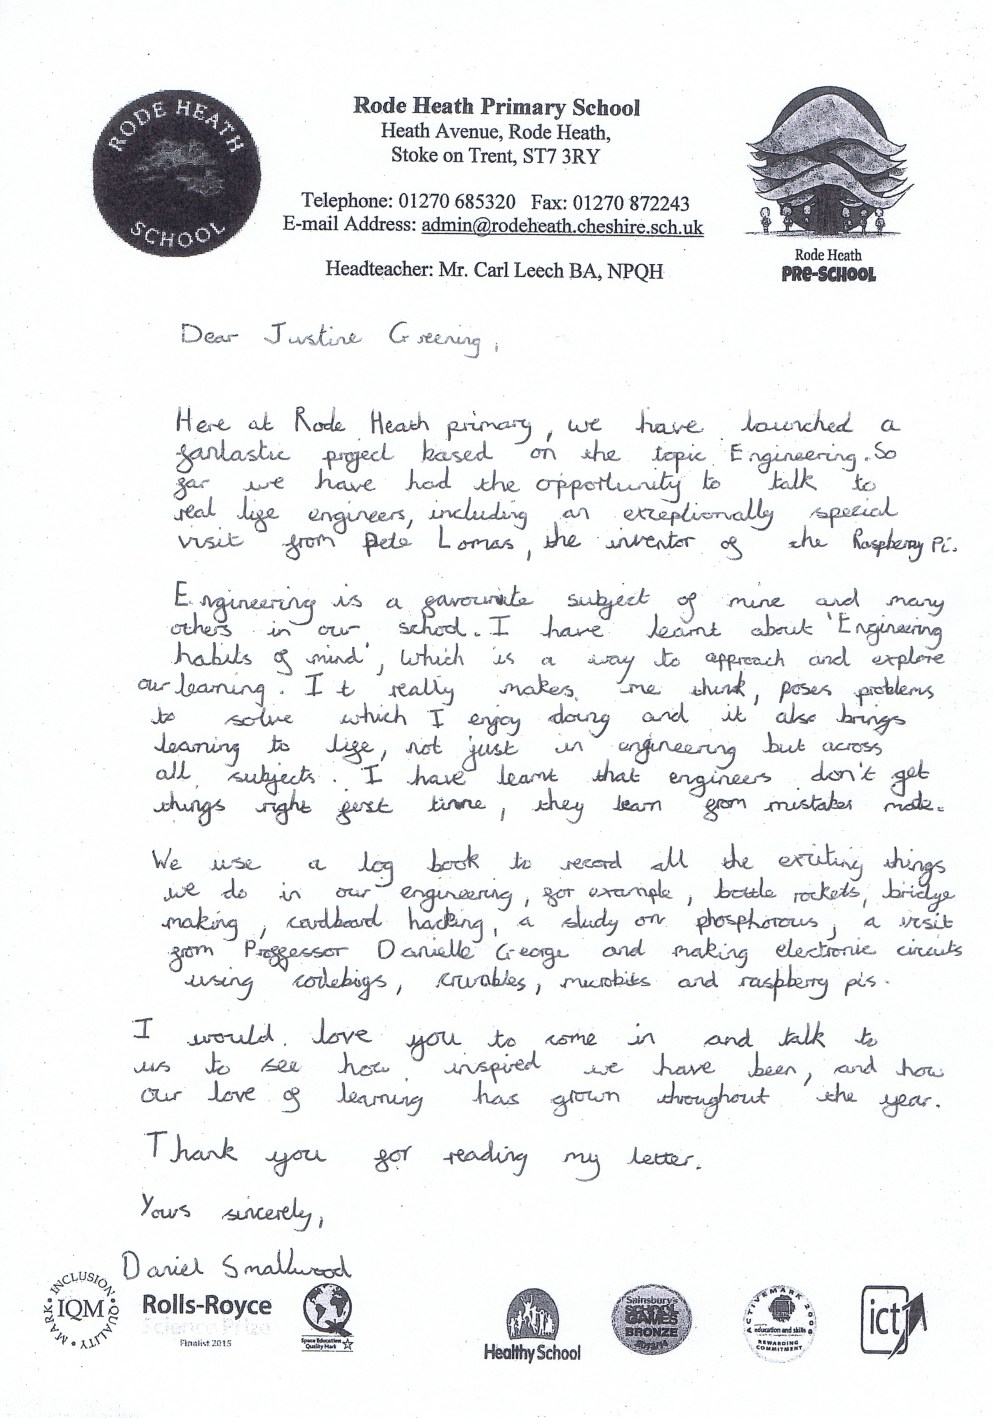 RODE HEATH
SCHOOL
Rode Heath Primary School
Heath Avenue, Rode Heath,
Stoke on Trent, ST7 3RY
Telephone: 01270 685320 Fax: 01270 872243
E-mail Address: admin@rodeheath.cheshire.sch.uk
Headteacher: Mr. Carl Leech BA, NPQH
Rode Heath
PRe-SCHOOL
Dear Justine Greening,
Here at Rode Heath primary, we have launched a
fantastic project based on the topic Engineering. So
far we have had the opportunity to talk to
real life engineers, including an exceptionally special
visit from Pete Lomas, the inventor of the Raspberry Pi.
Engineering is a favourite subject of mine and many
others in our school. I have learnt about 'Engineering
habits of mind', which is a way to approach and explore
our learning. It really makes me think, poses problems
to solve which I enjoy doing and it also brings
learning to life, not just in engineering but across
all subjects. I have learnt that engineers don't get
things right first time, they learn from mistakes made.
We use a log book to record all the exciting things
we do in our engineering, for example, bottle rockets, bridge
making, cardboard hacking, a study on phosphorous, a visit
from Proffessor Danielle George and making electronic circuits
using codebugs, crumbles, microbits and raspberry pis.
I would love you to come in and talk to
us to see how inspired we have been, and how
our love of learning has grown throughout the year.
Thank you for reading my letter.
Yours sincerely,
Daniel Smallwood
INCLUSION QUALITY MARK
IQM
Rolls-Royce
Science Prize
Finalist 2015
Space Education
Quality Mark
Healthy School
Sainsbury's
SCHOOL
GAMES
BRONZE
ACTIVEMARK
education and skills
REWARDING
COMMITMENT
ict